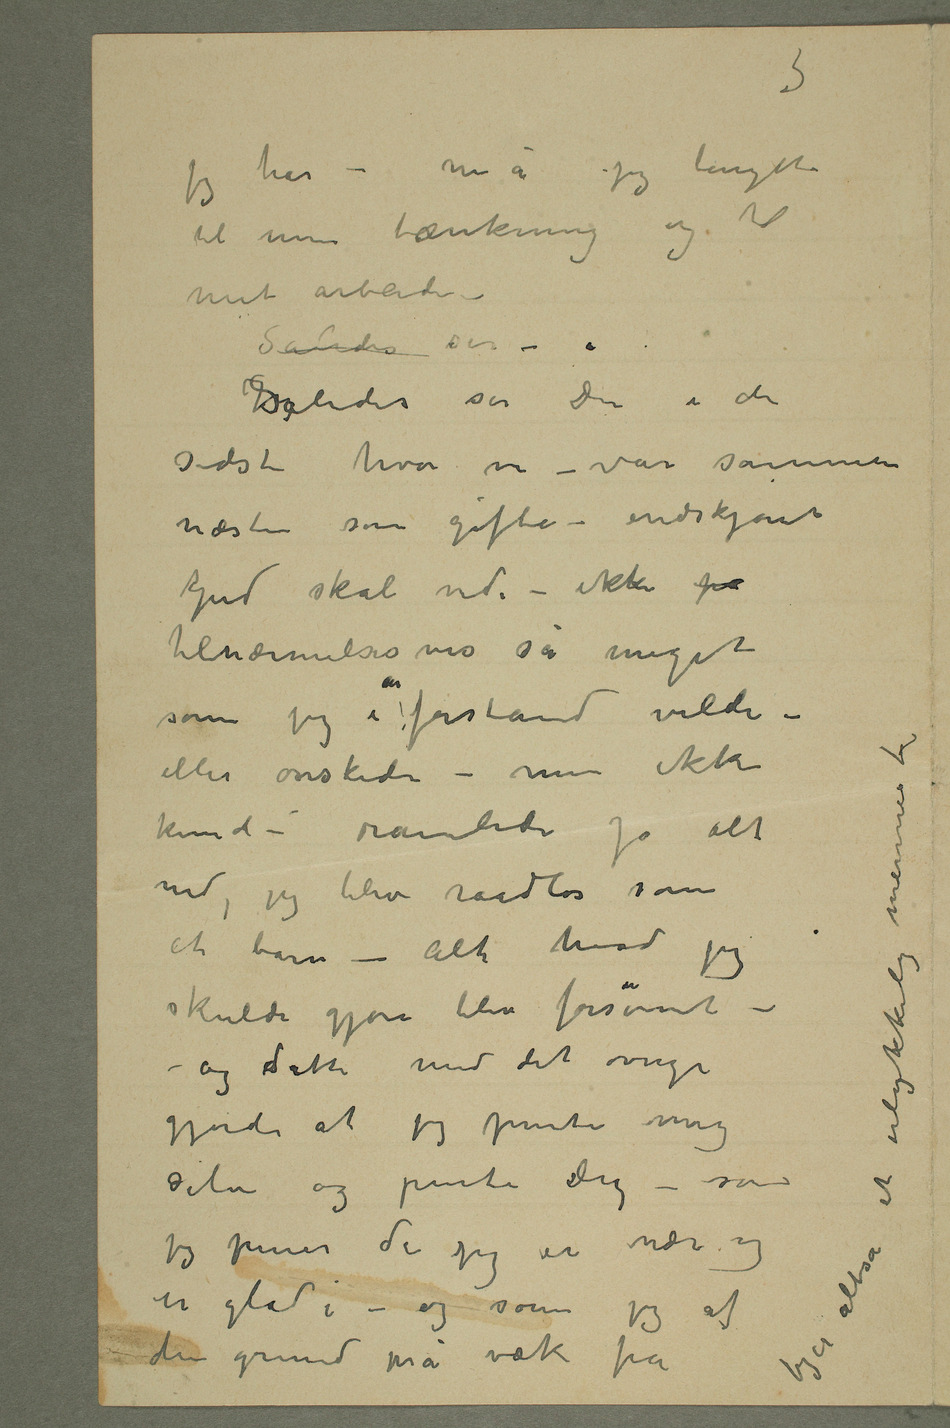 3
jeg har – må jeg længte
til min tænkning og til
mit arbeide –
Således ser – i
Således ser Du i de
sidste hvor vi – var sammen
næsten som gifte – endskjønt
Gud skal vide – ikke på
tilnærmelsesvis så meget
som jeg i en forstand vilde –
eller ønskede – men ikke
kund – ramlede jo alt
ned, jeg blev raadløs som
et barn – Alt hvad jeg
skulde gjøre blev forsømt –
– og dette med det øvrige
gjorde at jeg pinte mig
selv og pinte Dig – som
jeg piner de jeg er nær og
er glad i – og som jeg af
den grund må væk fra
Jeg er altså et ulykkelig menneske